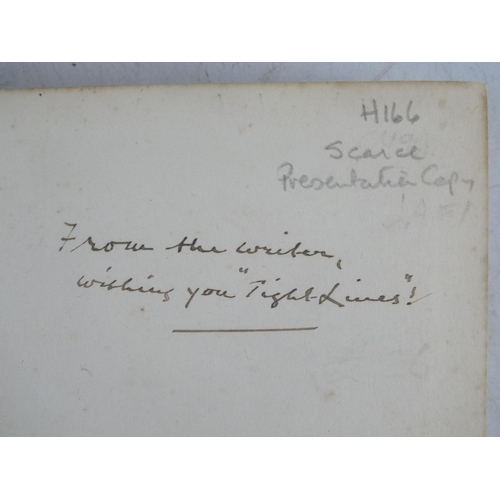 H166
Scarce
Presentation Copy
From the writer,
wishing you "Tight-Lines"!